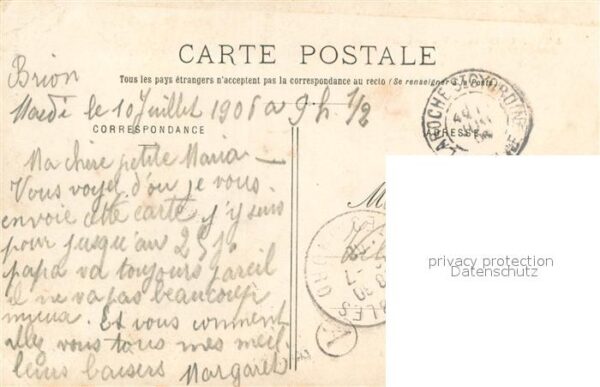 CARTE POSTALE
Tous les pays étrangers n'acceptent pas la correspondance au recto (Se renseigner à la Poste)
Brion
Mardi le 10 Juillet 1906 a 9 h. 1/2
CORRESPONDANCE
ADRESSE
LAROCHE-ST-CYDROINE
Ma chère petite Maria —
Vous voyez d'ou je vous
envoie cette carte j'y suis
pour jusqu'au 25 j.
papa va toujours pareil
il ne va pas beaucoup
mieux. Et vous comment
allez vous tous mes meil
leurs baisers Margaret
M
privacy protection
Datenschutz